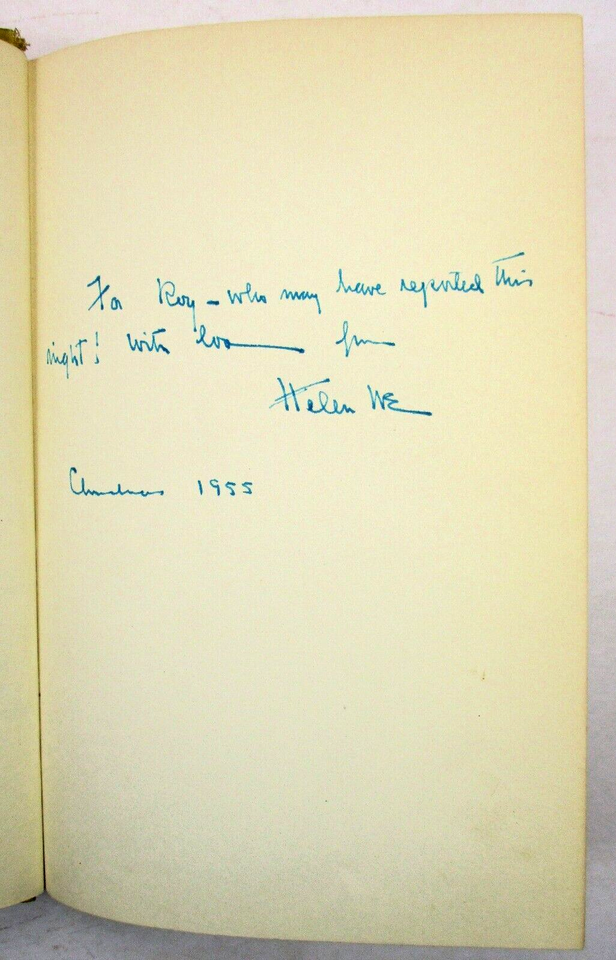 For Roy – who may have reported this
night! with love from
Helen WE
Christmas 1955